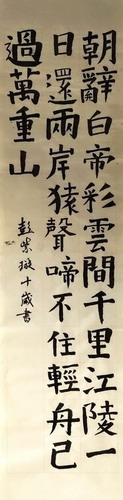 朝辭白帝彩雲間千里江陵一
日還兩岸猿聲啼不住輕舟已
過萬重山
彭紫璇十歲書